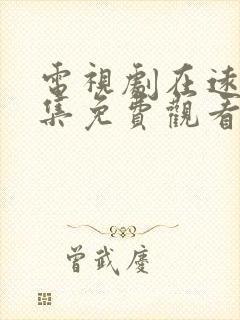 電視劇在遠
集免費觀看
曾武慶